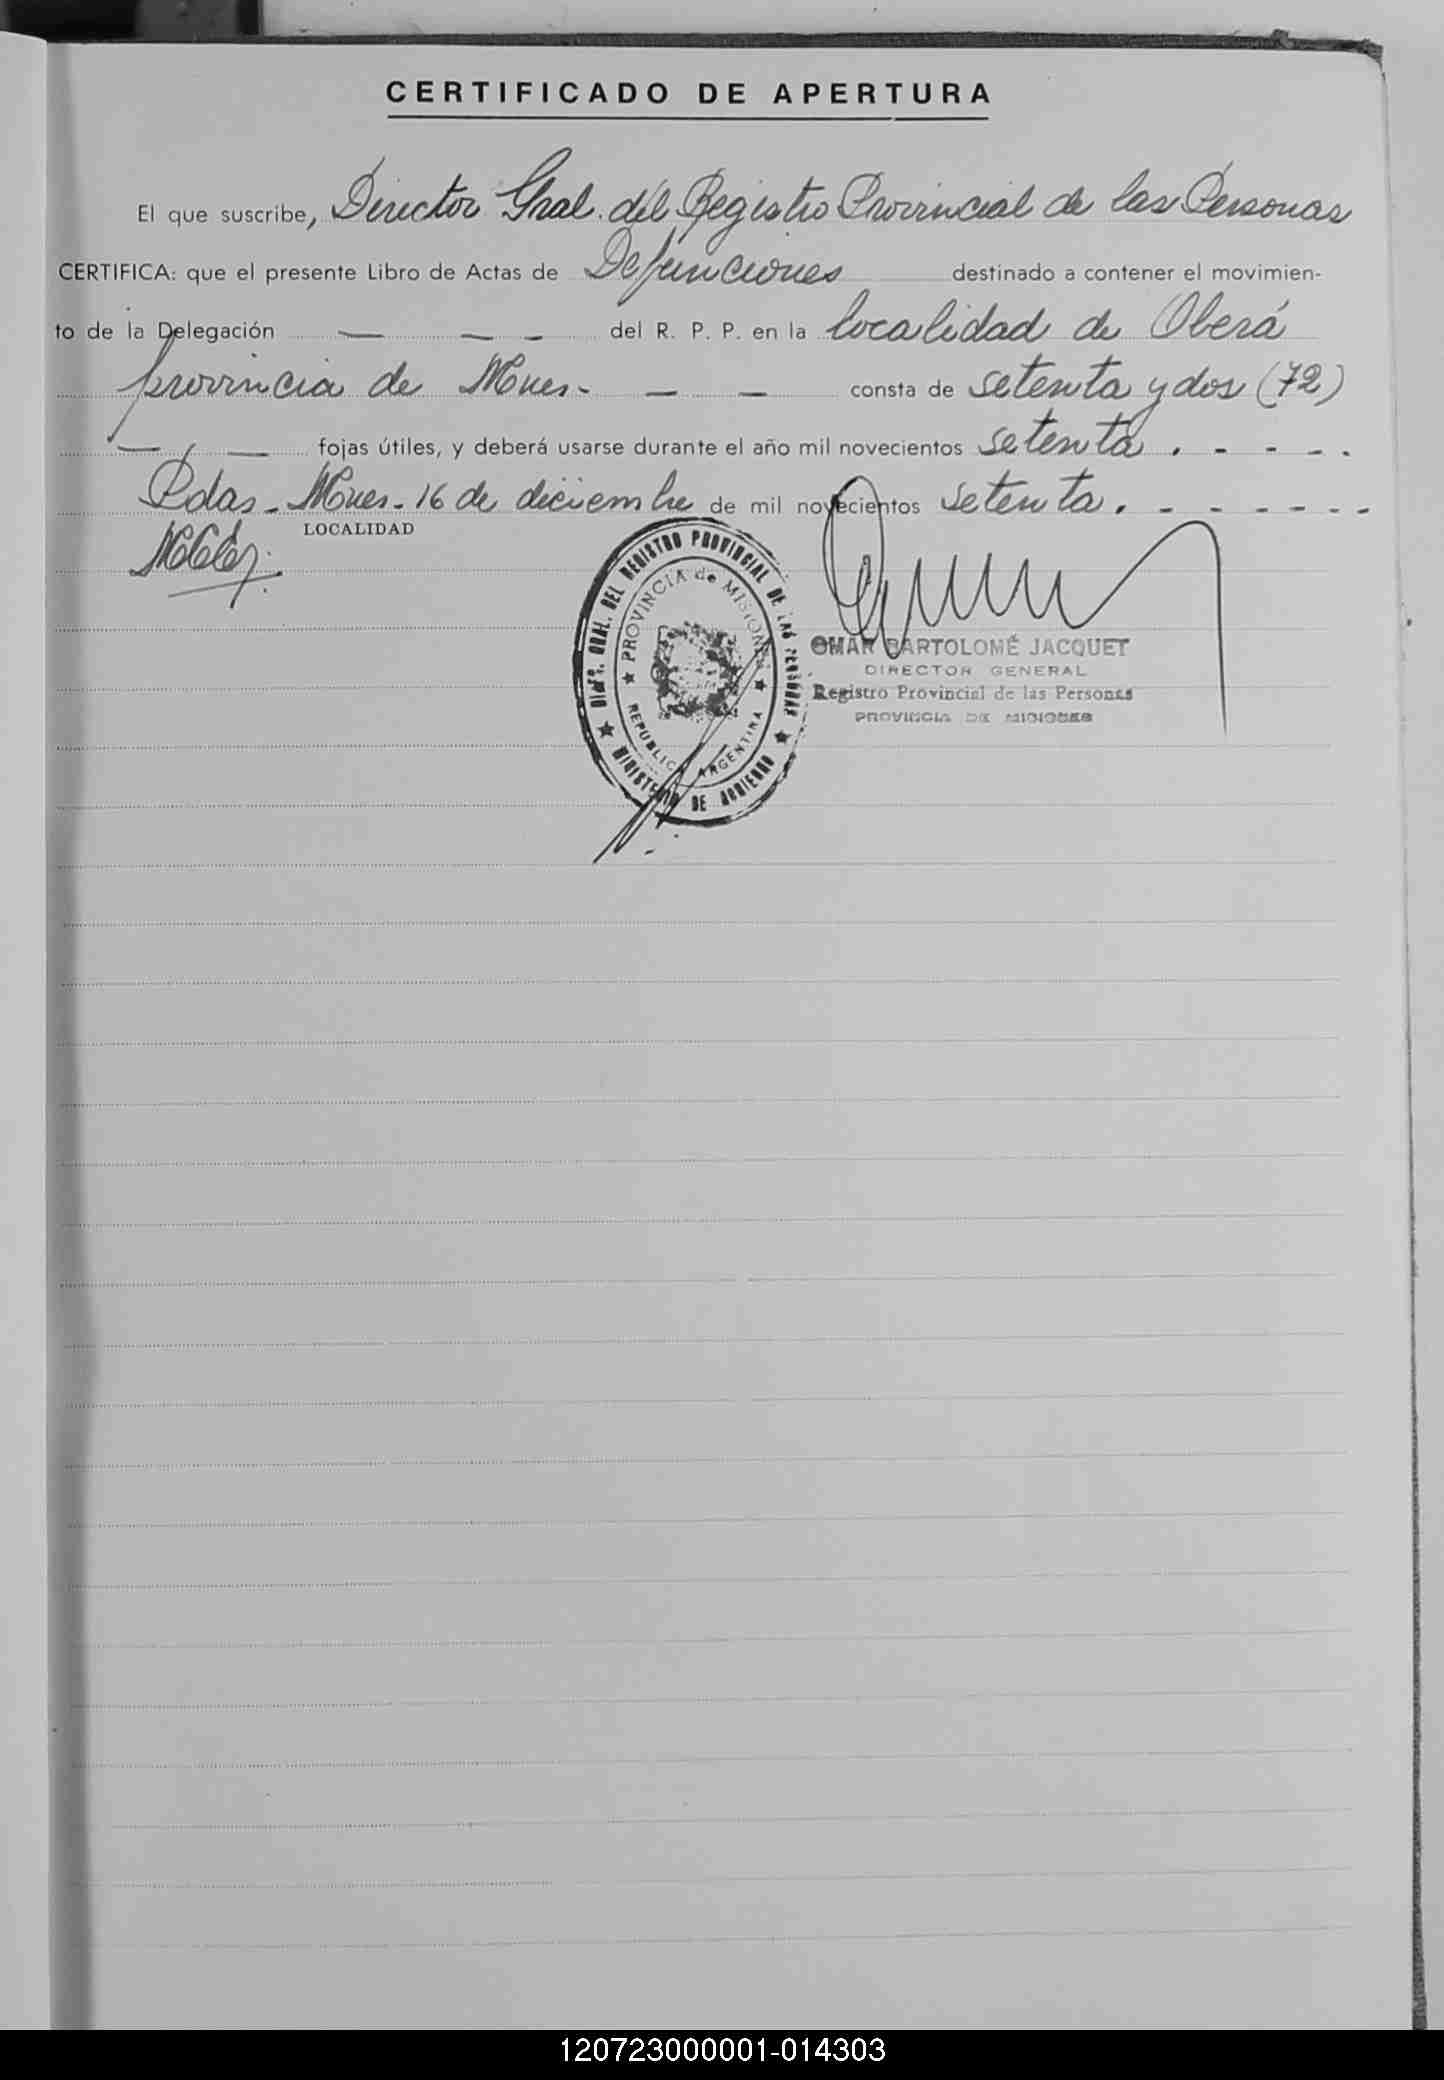 CERTIFICADO DE APERTURA
El que suscribe, Director Gral. del Registro Provincial de las Personas
CERTIFICA: que el presente Libro de Actas de Defunciones destinado a contener el movimien-
to de la Delegación — — - del R. P. P. en la localidad de Oberá
provincia de Mnes.- — — consta de setenta y dos (72)
— — fojas útiles, y deberá usarse durante el año mil novecientos setenta . - - - .
Pdas. Mnes. 16 de diciembre de mil novecientos setenta . - - - - - - -
LOCALIDAD
DIREC. GRAL. DEL REGISTRO PROVINCIAL DE LAS PERSONAS
PROVINCIA de MISIONES
REPUBLICA ARGENTINA
MINISTERIO DE GOBIERNO
OMAR BARTOLOMÉ JACQUET
DIRECTOR GENERAL
Registro Provincial de las Personas
PROVINCIA DE MISIONES
120723000001-014303